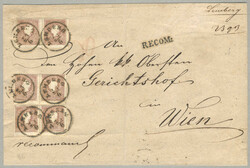 Lemberg
RECOM:
An
den Hohen kk Obersten
Gerichtshof
in
Wien
recommand